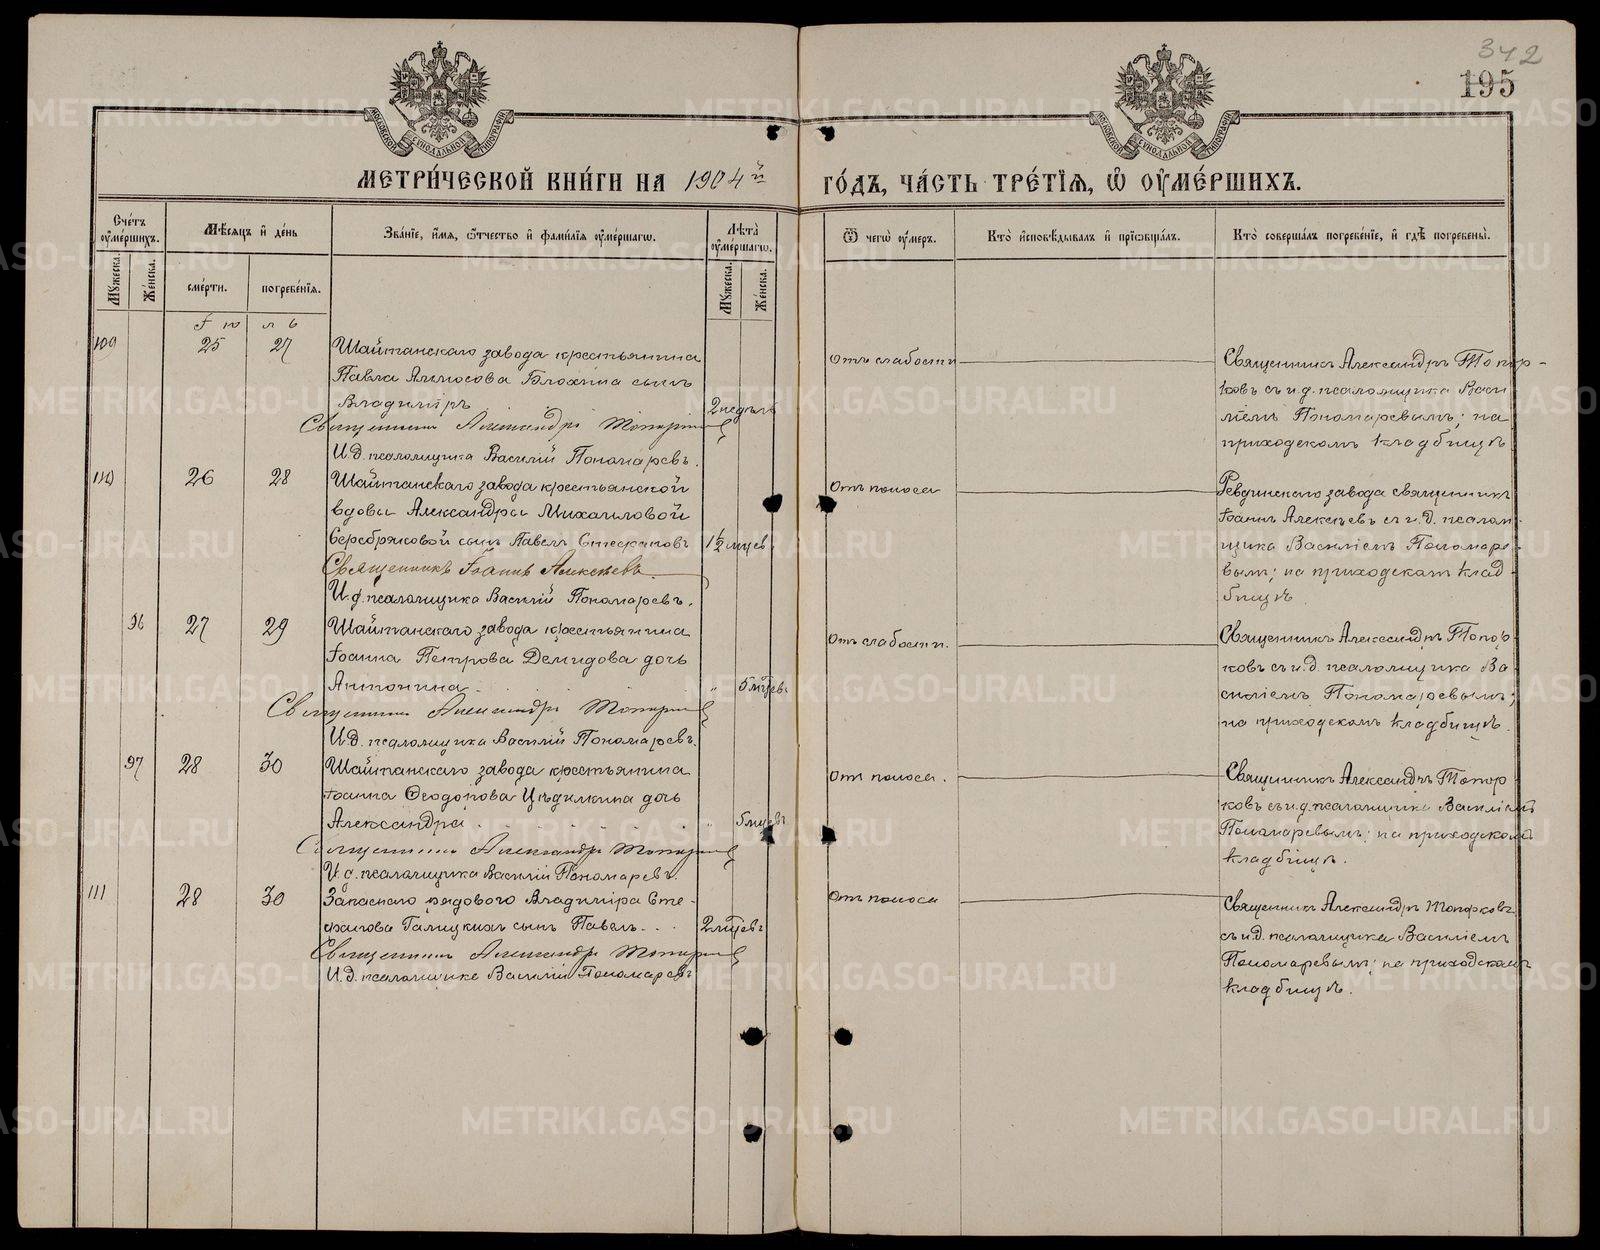 342
195
МОСКОВСКОЙ СѴНОДАЛЬНОЙ ТИПОГРАФІИ
МОСКОВСКОЙ СѴНОДАЛЬНОЙ ТИПОГРАФІИ
МЕТРИ́ЧЕСКОЙ КНИ́ГИ НА 1904й ГО́ДЪ, ЧА́СТЬ ТРЕ́ТІѦ, Ѡ҆ ОУ҆МЕ́РШИХЪ.
Сче́тъ оу҆ме́ршихъ.
Мѣ́сяцъ и҆ де́нь
Зва́нїе, и҆́мя, ѻ҆́тчество и҆ фами́лїя оу҆ме́ршагѡ.
Лѣ́та оу҆ме́ршагѡ.
Ѿ чегѡ̀ оу҆́меръ.
Кто̀ и҆сповѣ́дывалъ и҆ прїѡбща́лъ.
Кто̀ соверша́лъ погребе́нїе, и҆ гдѣ̀ погребены̀.
Мꙋ́жеска.
Же́нска.
сме́рти.
погребе́нїя.
Мꙋ́жеска.
Же́нска.
Іюль
109 25 27 Шайтанскаго завода крестьянина
Павла Блохина сынъ
Владиміръ 2 недѣль
Священникъ Александръ Топорковъ
И.д. псаломщика Василій Пономаревъ.
Отъ слабости
Священникъ Александръ Топор-
ковъ съ и.д. псаломщика Васи
ліемъ Пономаревымъ; на
приходскомъ кладбищѣ
110 26 28 Шайтанскаго завода крестьянской
вдовы Александры Михаиловой
Серебряковой сынъ Павелъ 1½ мцев.
Священникъ Іоаннъ Алексѣевъ
И.д. псаломщика Василій Пономаревъ.
Отъ поноса
Ревдинскаго завода священникъ
Іоаннъ Алексѣевъ съ и.д. псалом-
щика Василіемъ Пономаре-
вымъ; на приходскомъ клад-
бищѣ
96 27 29 Шайтанскаго завода крестьянина
Іоанна Петрова Демидова дочь
Антонина 5 мцевъ
Священникъ Александръ Топорковъ
И.д. псаломщика Василій Пономаревъ.
Отъ слабости.
Священникъ Александръ Топор-
ковъ съ и.д. псаломщика Ва-
силіемъ Пономаревымъ;
на приходскомъ кладбищѣ.
97 28 30 Шайтанскаго завода крестьянина
Іоанна Ѳеодорова дочь
Александра 5 мцевъ
Священникъ Александръ Топорковъ
И.д. псаломщика Василій Пономаревъ.
Отъ поноса.
Священникъ Александръ Топор
ковъ съ и.д. псаломщика Василіемъ
Пономаревымъ; на приходскомъ
кладбищѣ.
111 28 30 Запаснаго рядового Владиміра Сте-
фанова Галицкихъ сынъ Павелъ 2 мцевъ
Священникъ Александръ Топорковъ
И.д. псаломщика Василій Пономаревъ
Отъ поноса
Священникъ Александръ Топорковъ
съ и.д. псаломщика Василіемъ
Пономаревымъ; на приходскомъ
кладбищѣ.
METRIKI.GASO-URAL.RU